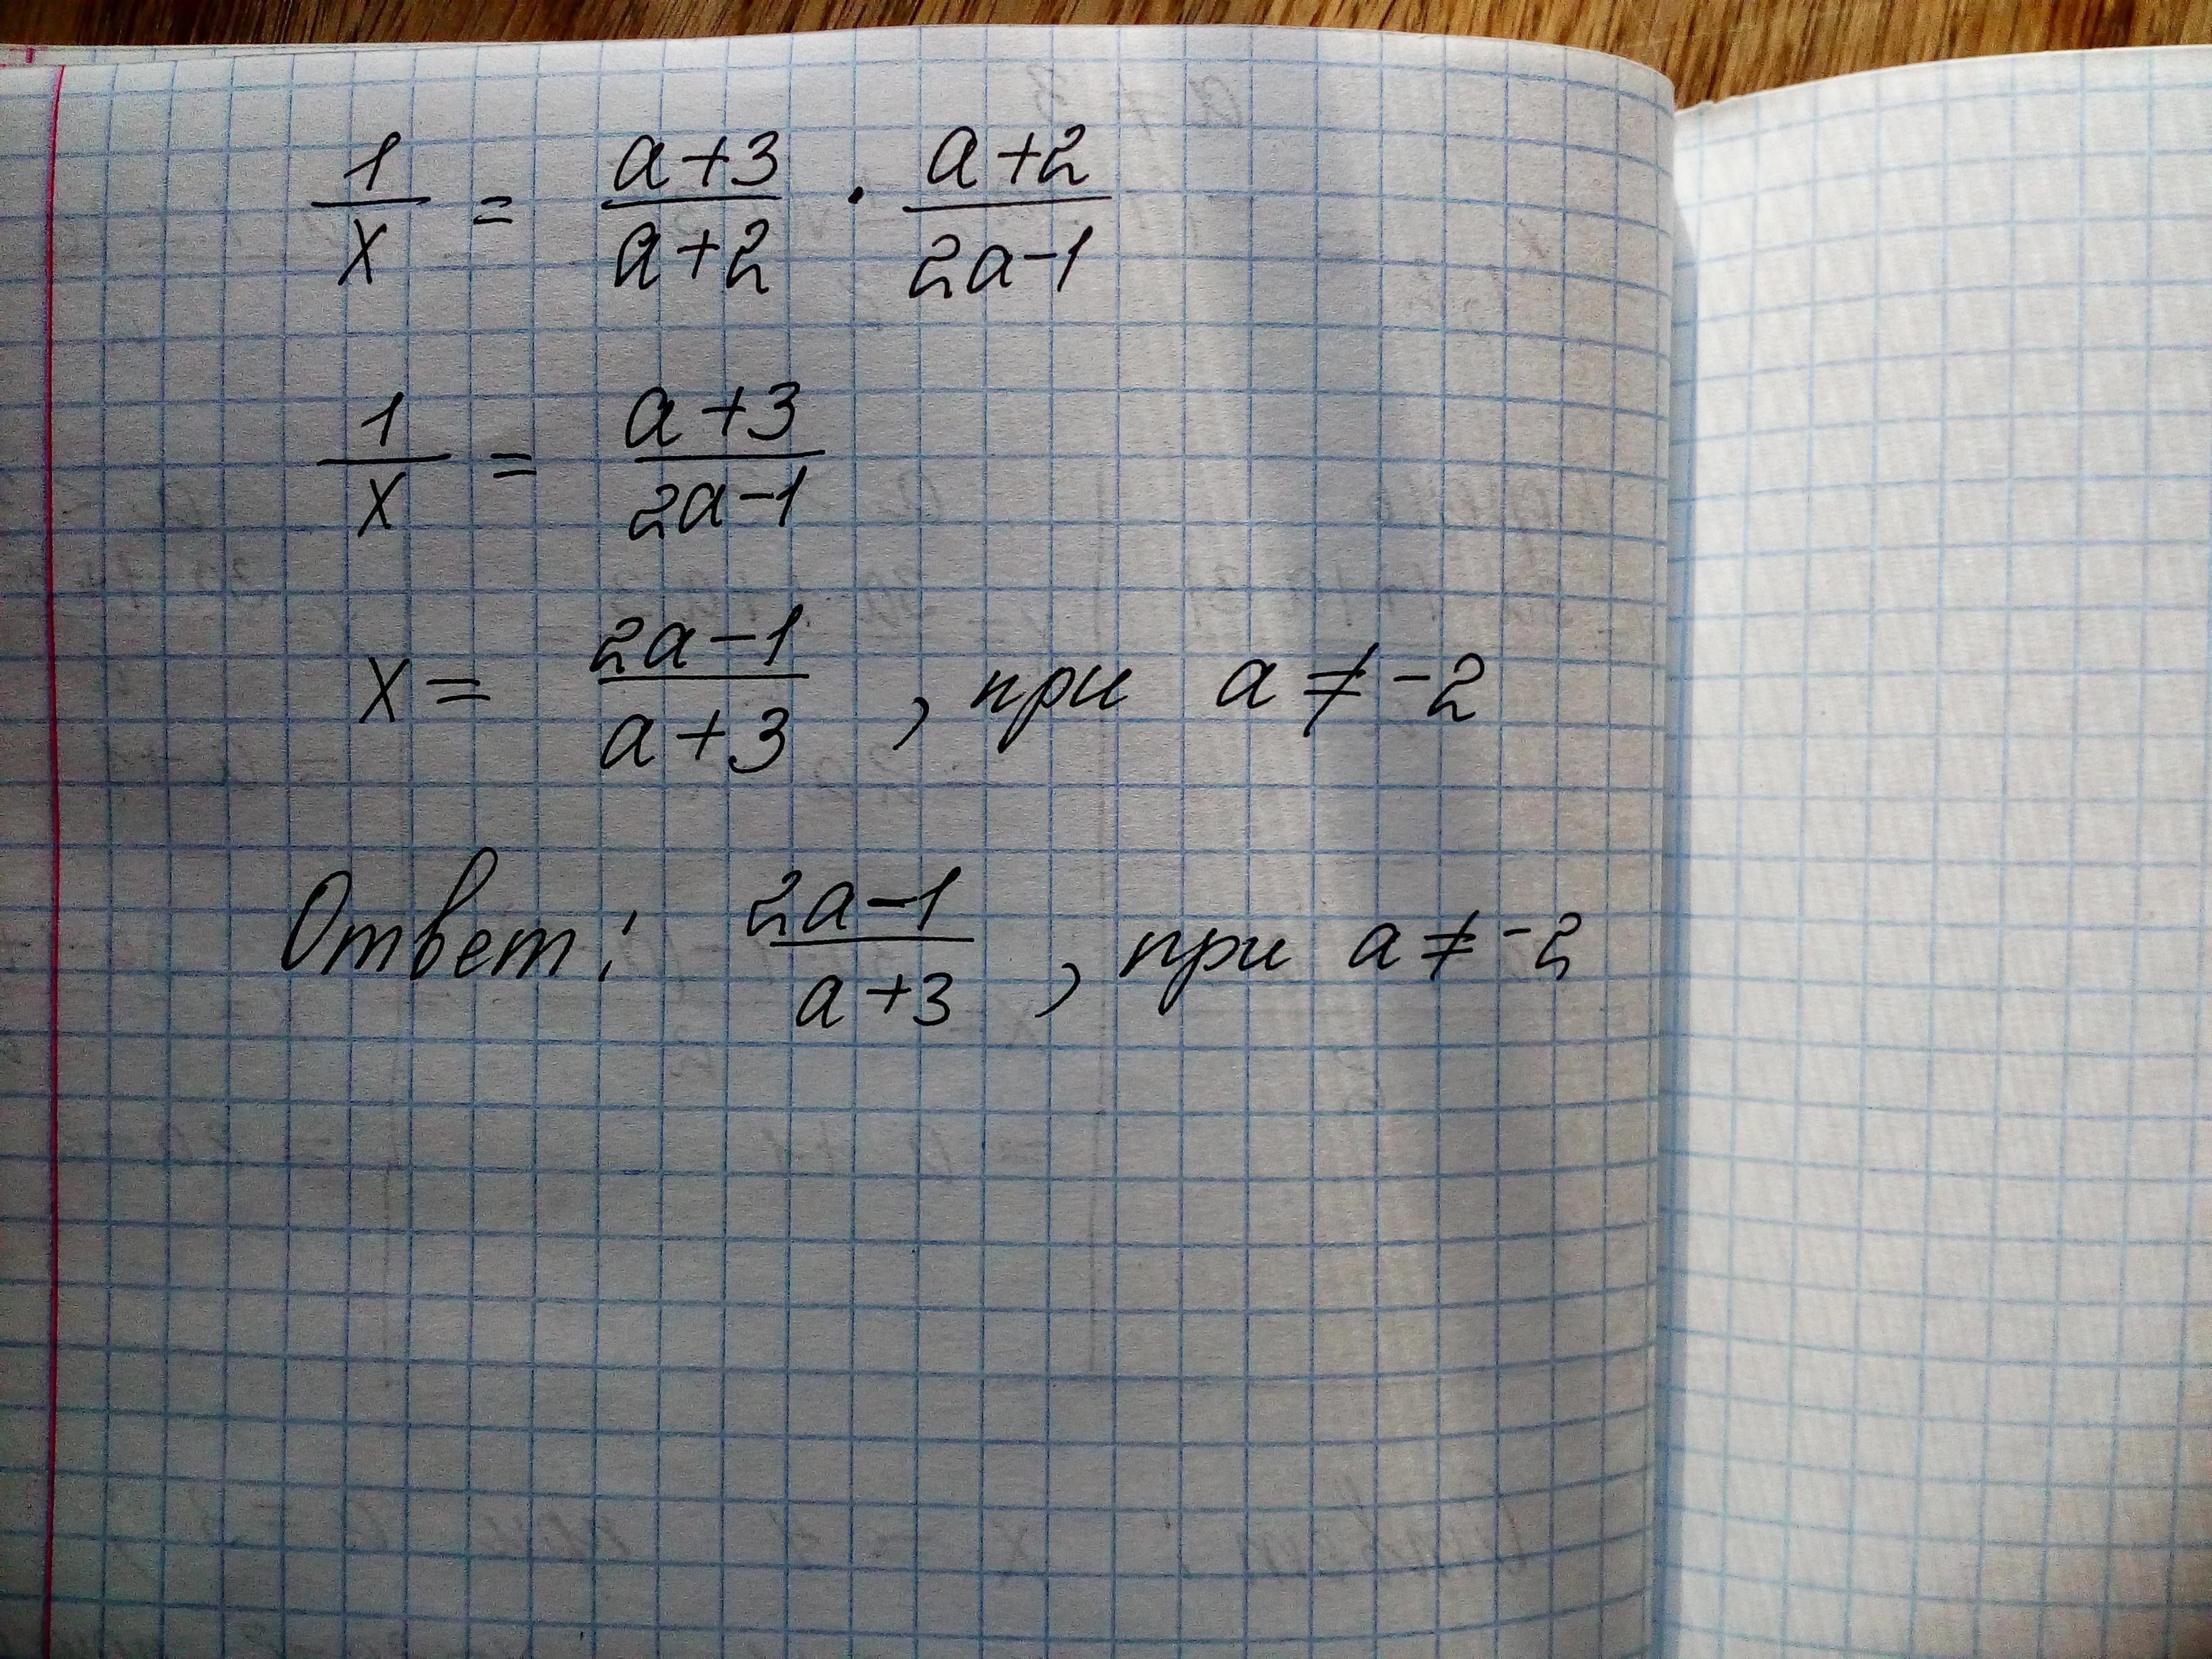 1/x = (a+3)/(a+2) · (a+2)/(2a-1)
1/x = (a+3)/(2a-1)
x = (2a-1)/(a+3) , при a ≠ -2
Ответ: (2a-1)/(a+3) , при a ≠ -2